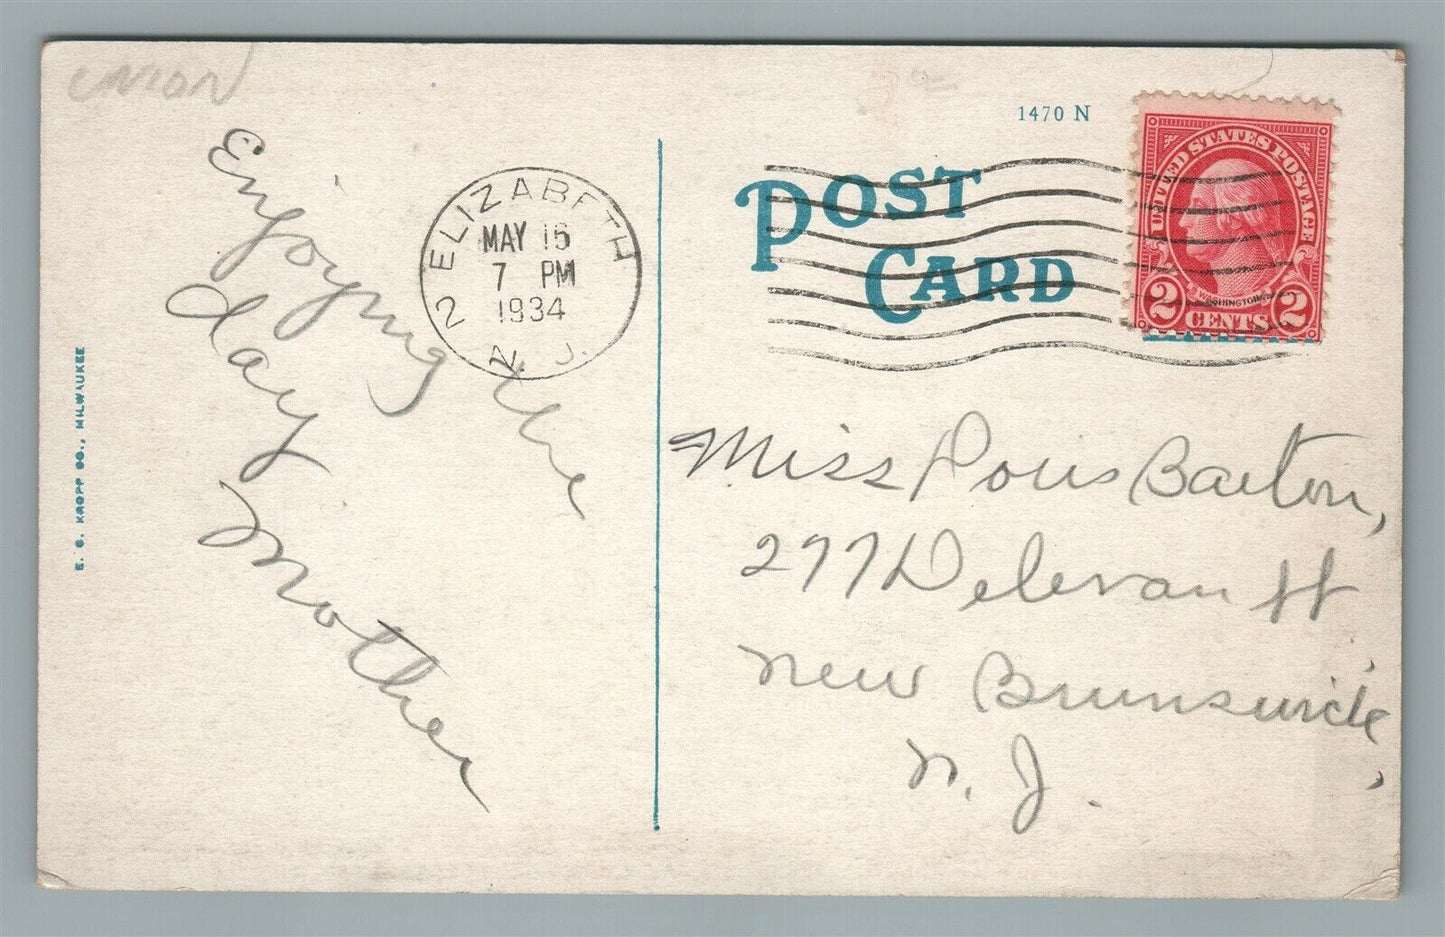 union
Enjoying the
day
Mother
E. C. KROPP CO., MILWAUKEE
2 ELIZABETH N. J.
MAY 15
7 PM
1934
1470 N
POST
CARD
UNITED STATES POSTAGE
WASHINGTON
2 CENTS 2
Miss Barton,
277 Delevan St
New Brunswick,
N. J.